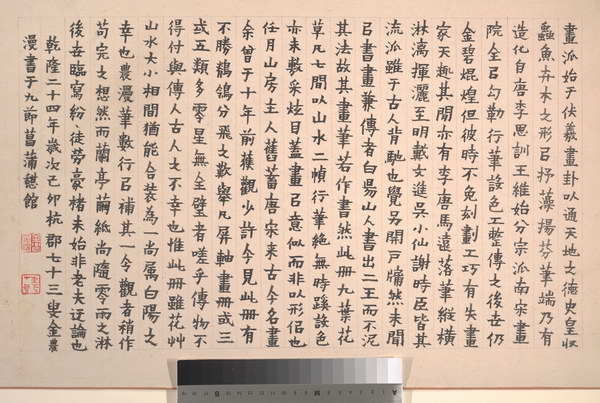 畫派始于伏羲畫卦以通天地之德史皇收
蟲魚卉木之形㠯抒藻揚芬筆端乃有
造化自唐李思訓王維始分宗派南宗畫
院全㠯勾勒行筆設色工整傳之後世仍
金碧焜煌但彼時不免刻劃工巧有失畫
家天趣其間亦有李唐馬遠落筆縱橫
淋漓揮灑至明戴文進吳小仙謝時臣皆其
流派雖于古人背馳也覺另開戶牖然未聞
㠯書畫兼傳者白陽山人書出二王而不泥
其法故其畫筆若作書然此冊九葉花
草凡七間以山水二幀行筆絕無時蹊設色
亦未藪采炫目蓋畫㠯意似而非以形侶也
任月山房主人舊蓄唐宋來古今名畫
余曾于十年前獲觀少許今見此冊有
不勝鶺鴒分飛之歎舉凡屏軸畫冊或三
或五類多零星無全璧者嗟乎傳物不
得付與傳人古人之不幸也惟此冊雖花艸
山水大小相間猶能合裝為一尚屬白陽之
幸也農漫筆數行㠯補其一令觀者稍作
苟完之想然而蘭亭繭紙尚隨零雨之淋
後世臨寫紛紛徒勞豪楮未始非老夫迂論也
乾隆二十四年歲次己卯杭郡七十三叟金農
漫書于九節菖蒲憩館